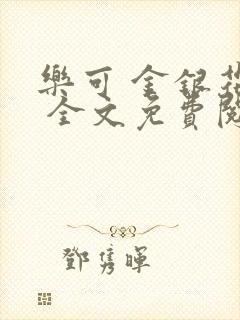 樂可 金銀花
全文免費閱
鄧隽暉